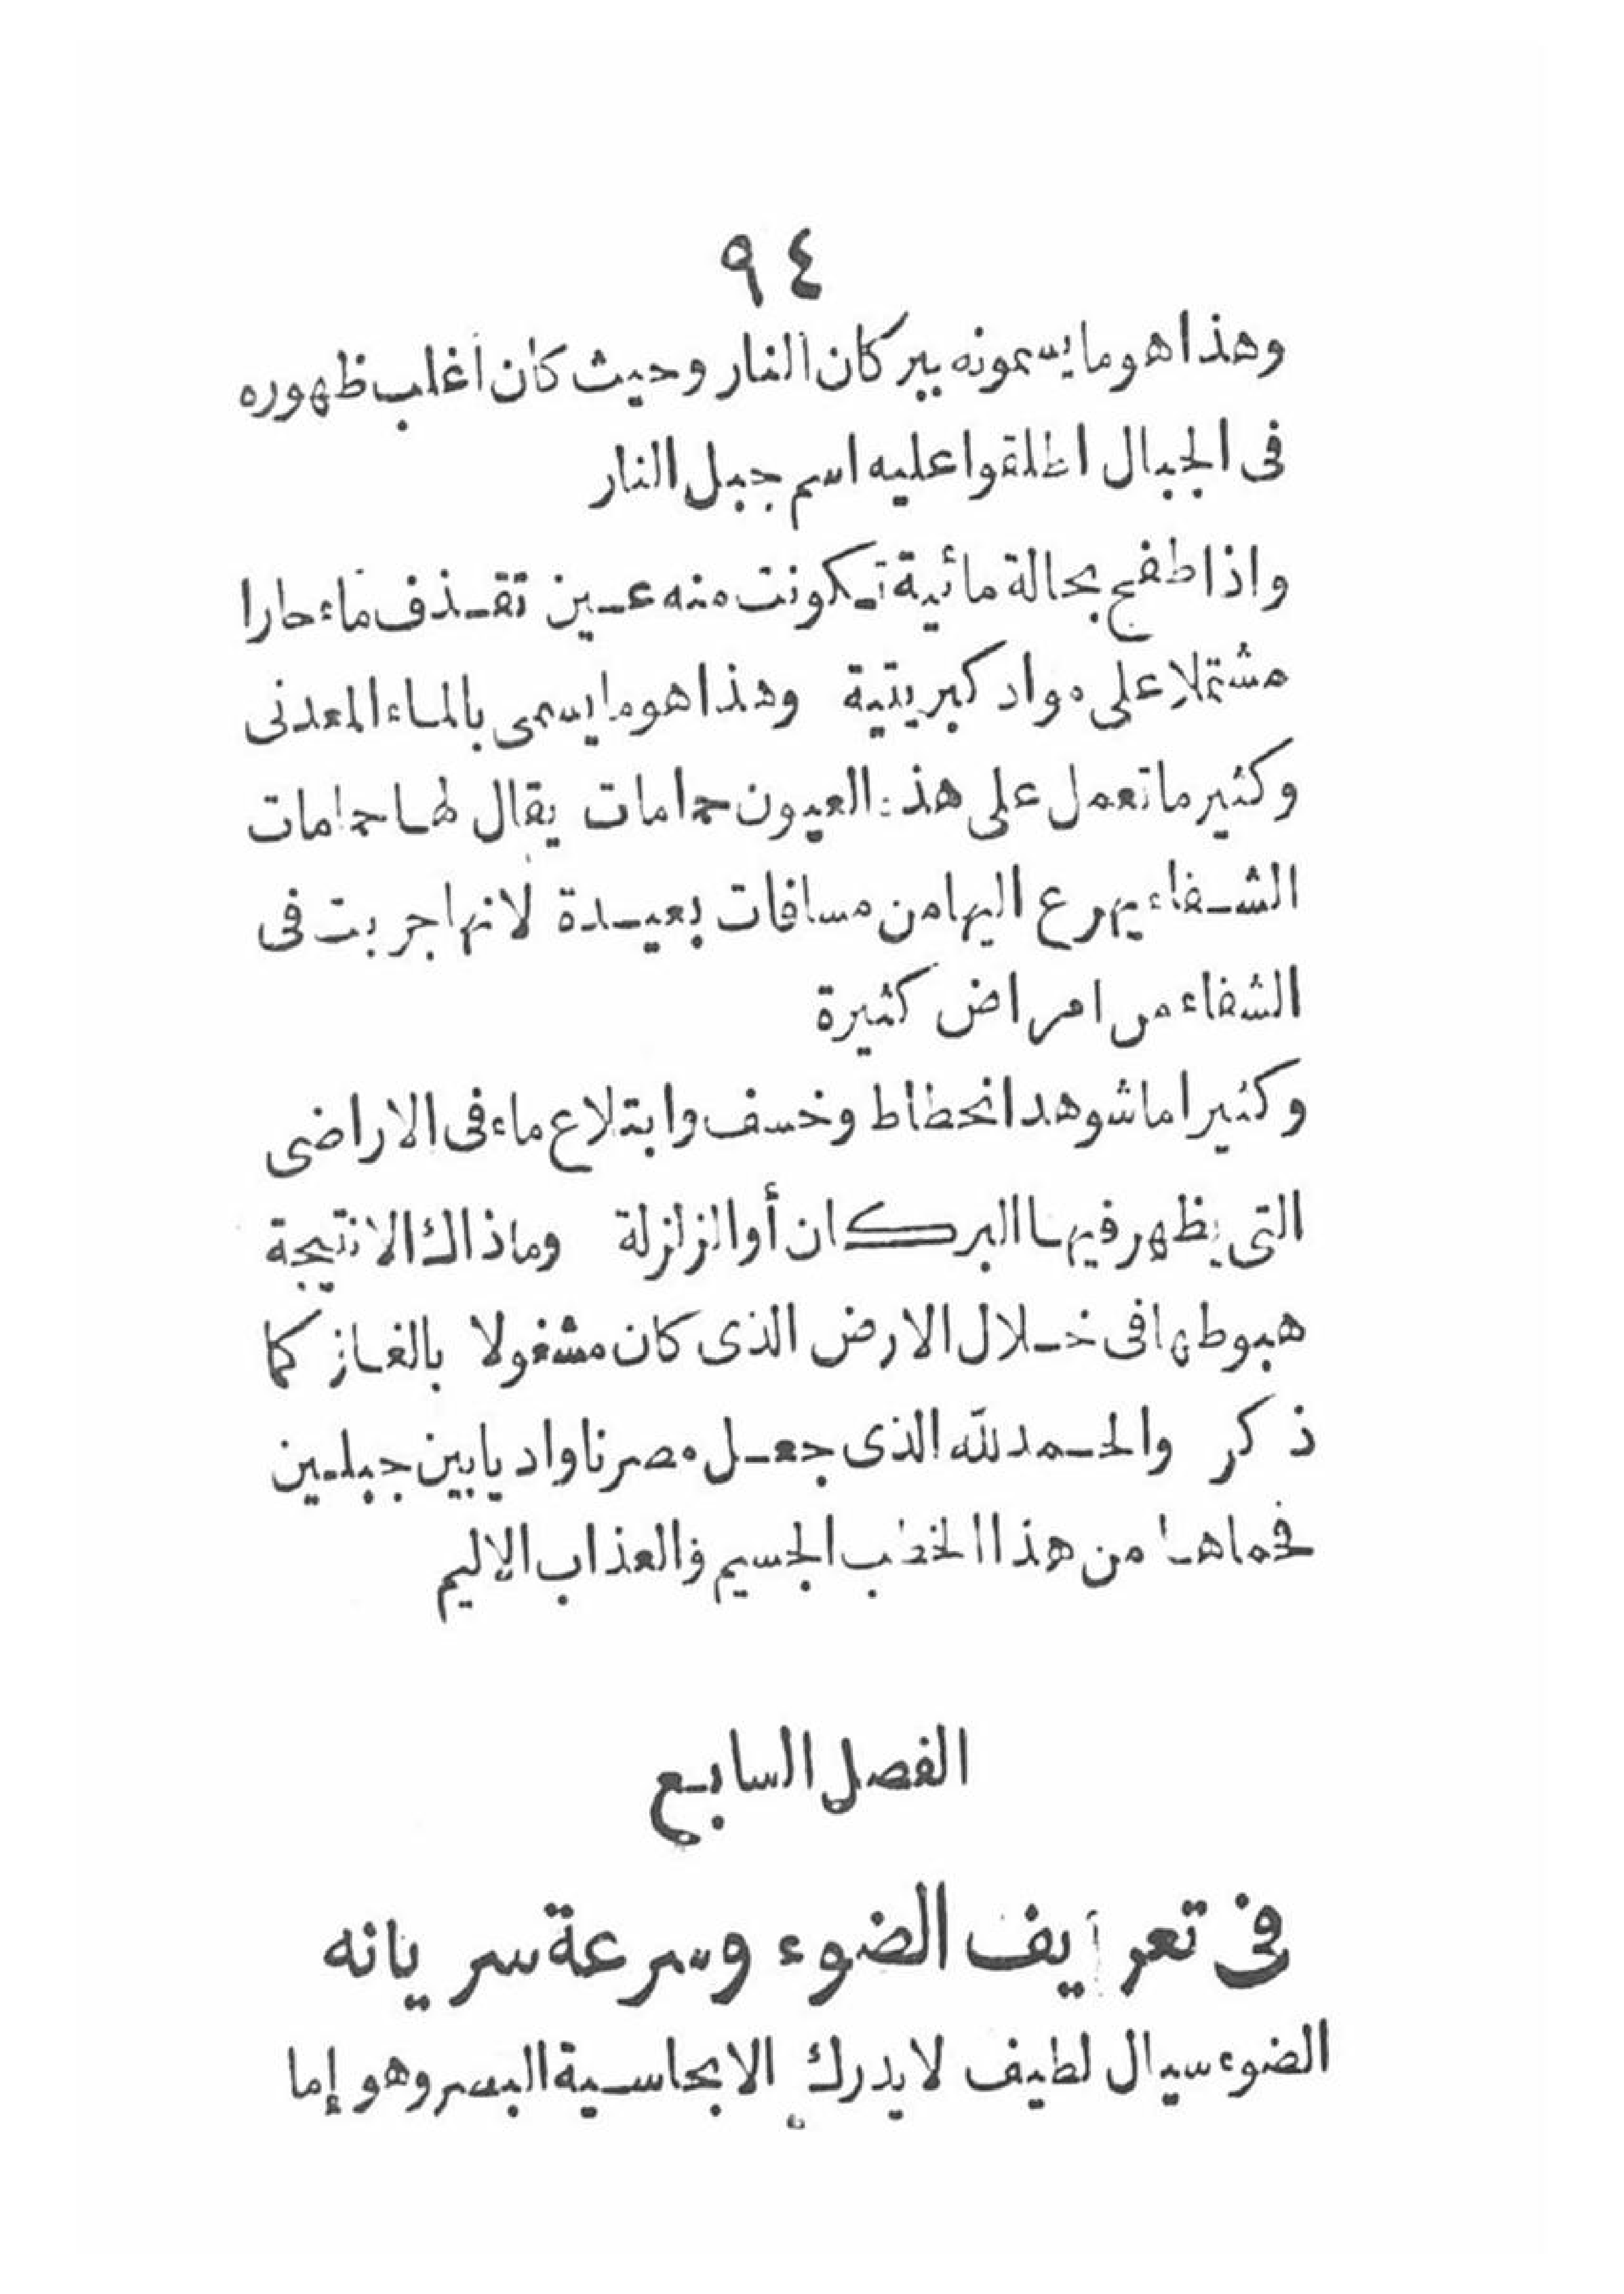 ٩٤
وهذا هو ما يسمونه ببركان النار وحيث كان أغلب ظهوره
فى الجبال اطلقوا عليه اسم جبل النار
واذا طفح بحالة مائية تكونت منه عين تقذف ماء حارا
مشتملا على مواد كبريتية وهذا هو ما يسمى بالماء المعدنى
وكثير ما تعمل على هذه العيون حمامات يقال لها حمامات
الشفاء يهرع اليها من مسافات بعيدة لانها جربت فى
الشفاء من امراض كثيرة
وكثيرا ما شوهد انحطاط وخسف وابتلاع ماء فى الاراضى
التى يظهر فيها البركان أو الزلزلة وما ذاك الا نتيجة
هبوطها فى خلال الارض الذى كان مشغولا بالغاز كما
ذكر والحمد لله الذى جعل مصرنا واديا بين جبلين
فحماها من هذا الخطب الجسيم والعذاب الاليم
الفصل السابع
فى تعريف الضوء وسرعة سريانه
الضوء سيال لطيف لا يدرك الا بحاسية البصر وهو إما